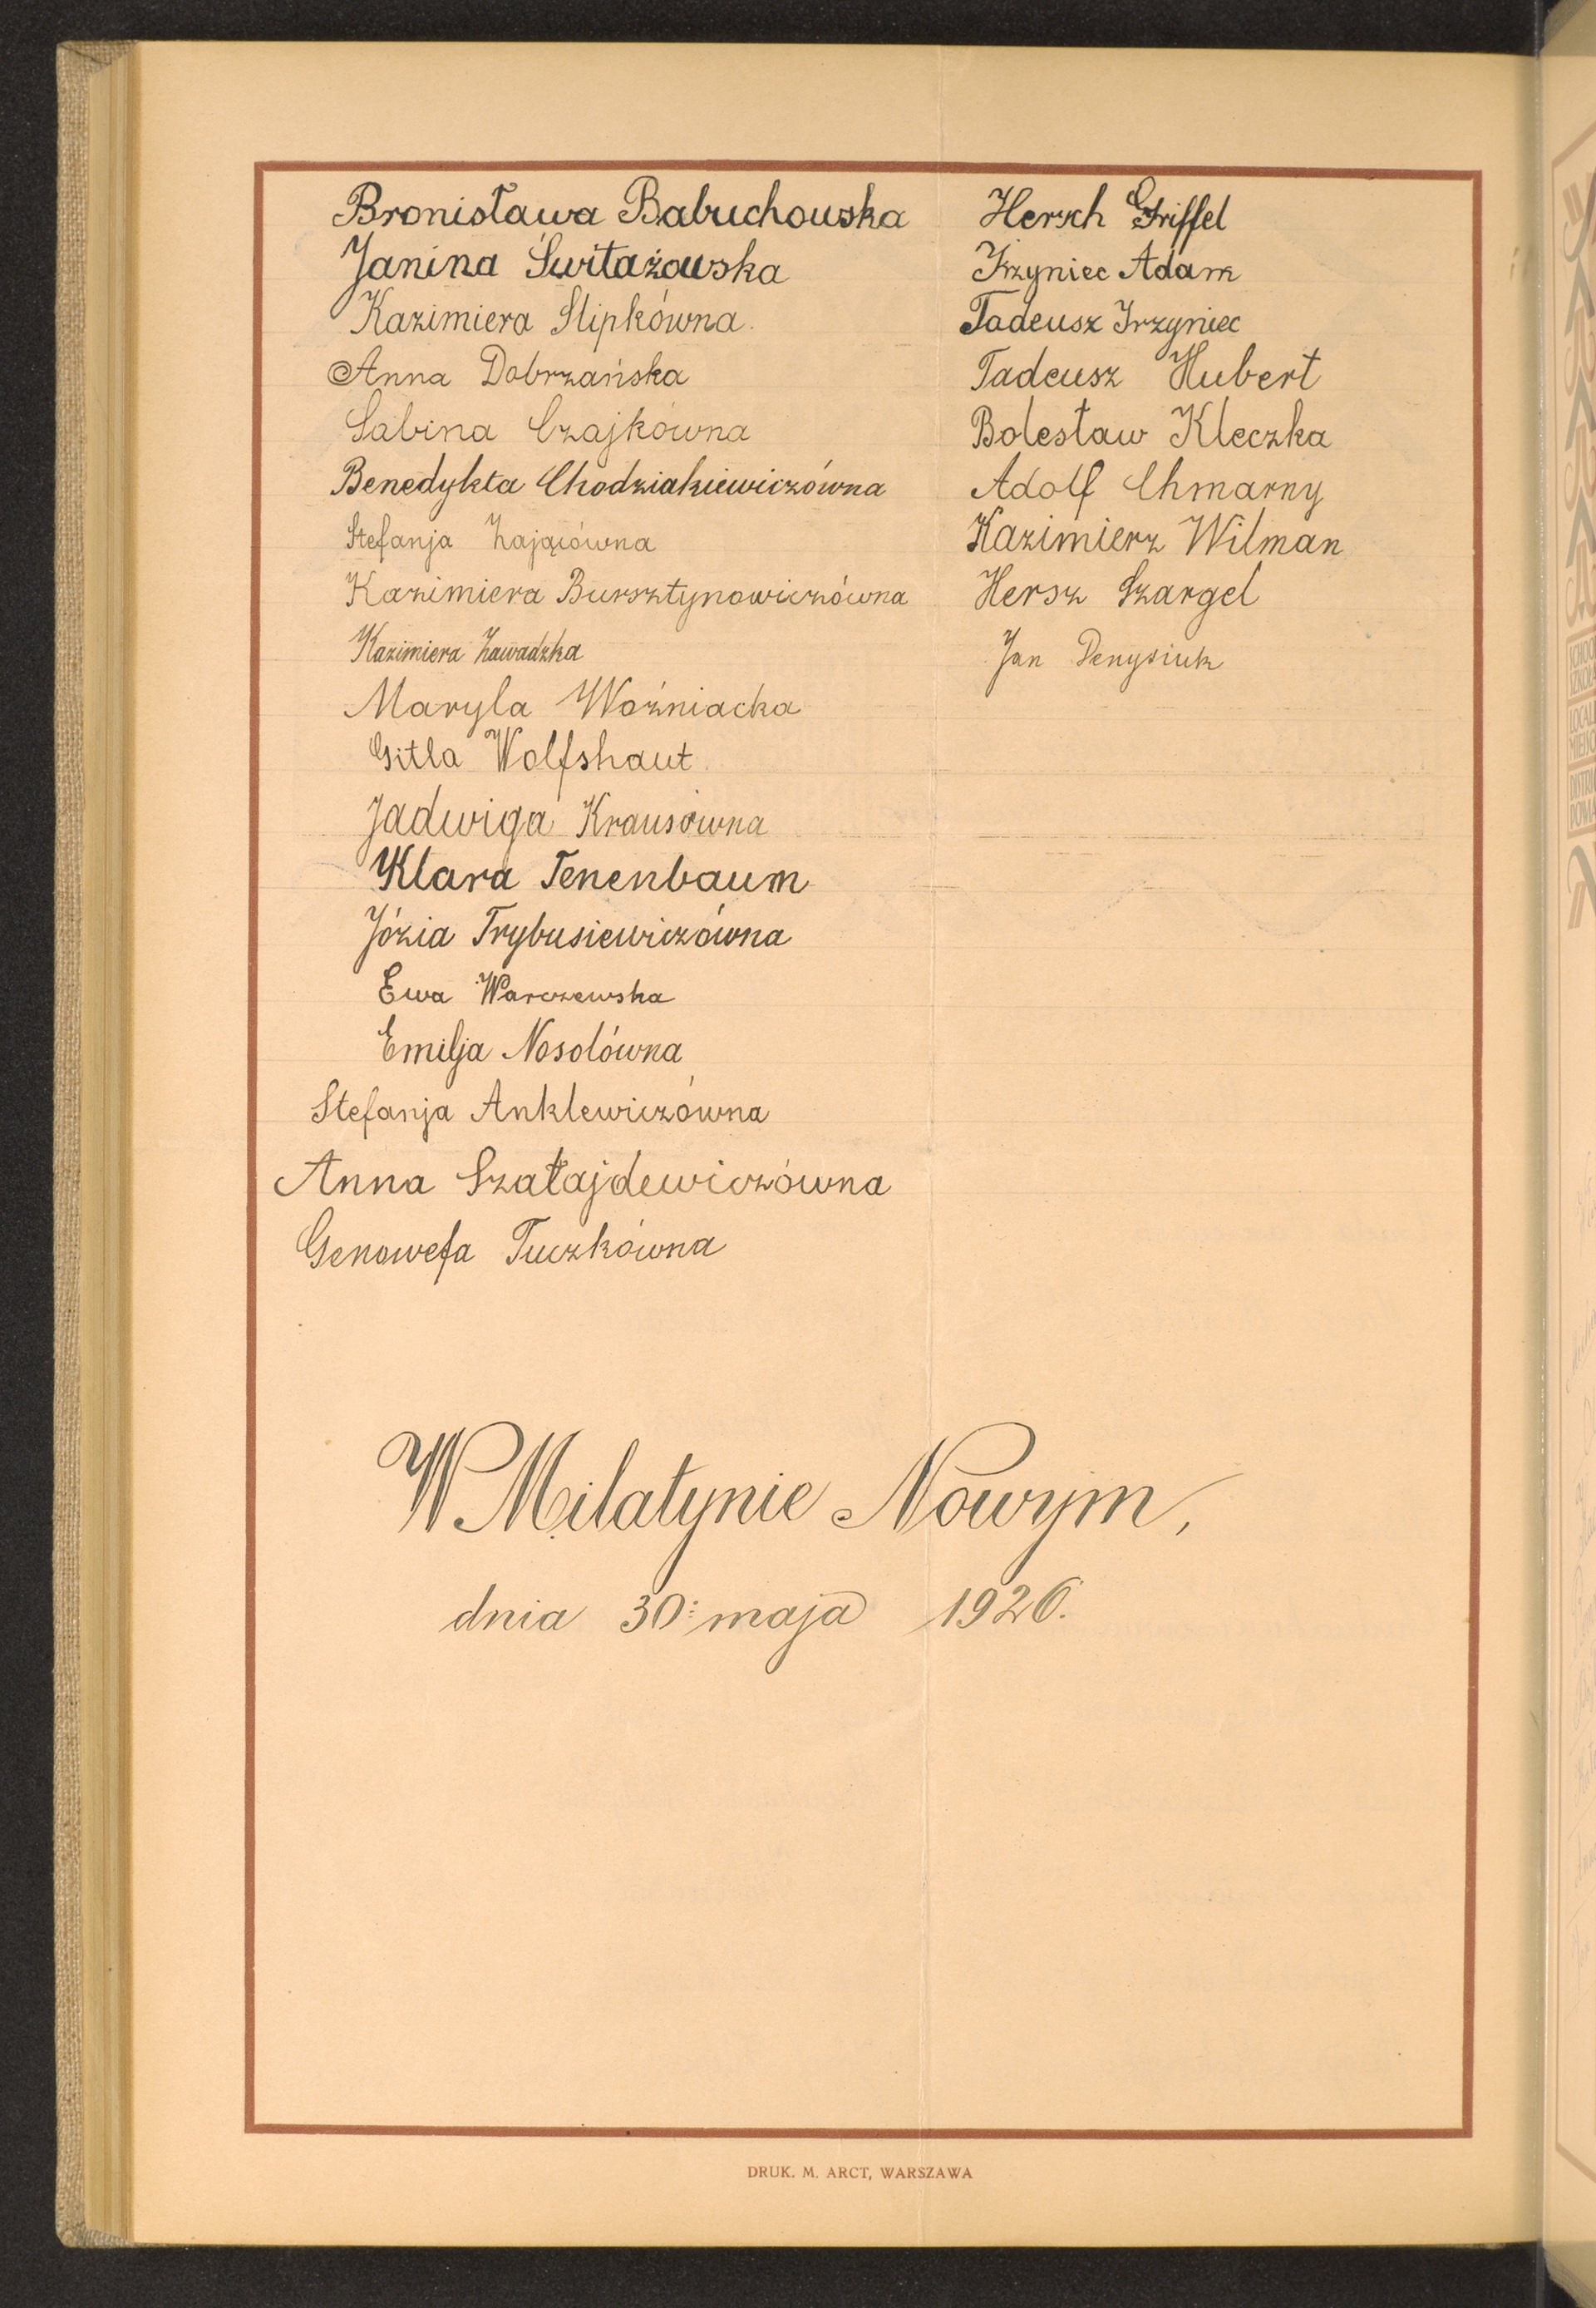 Bronisława Babuchowska
Janina Świtażowska
Kazimiera Slipkówna.
Anna Dobrzańska
Sabina Czajkówna
Benedykta Chodziakiewiczówna
Stefanja Zającówna
Kazimiera Bursztynowiczówna
Kazimiera Zawadzka
Maryla Woźniacka
Gitla Wolfshaut
Jadwiga Krausówna
Klara Tenenbaum
Józia Trybusiewiczówna
Ewa Warczewska
Emilja Nosolówna
Stefanja Anklewiczówna
Anna Szałajdewiczówna
Genowefa Tuczkówna
Hersch Griffel
Irzyniec Adam
Tadeusz Irzyniec
Tadeusz Hubert
Bolesław Kleczka
Adolf Chmarny
Kazimierz Wilman
Hersz Szargel
Jan Denysiuk
W Milatynie Nowym,
dnia 30: maja 1926.
DRUK. M. ARCT, WARSZAWA